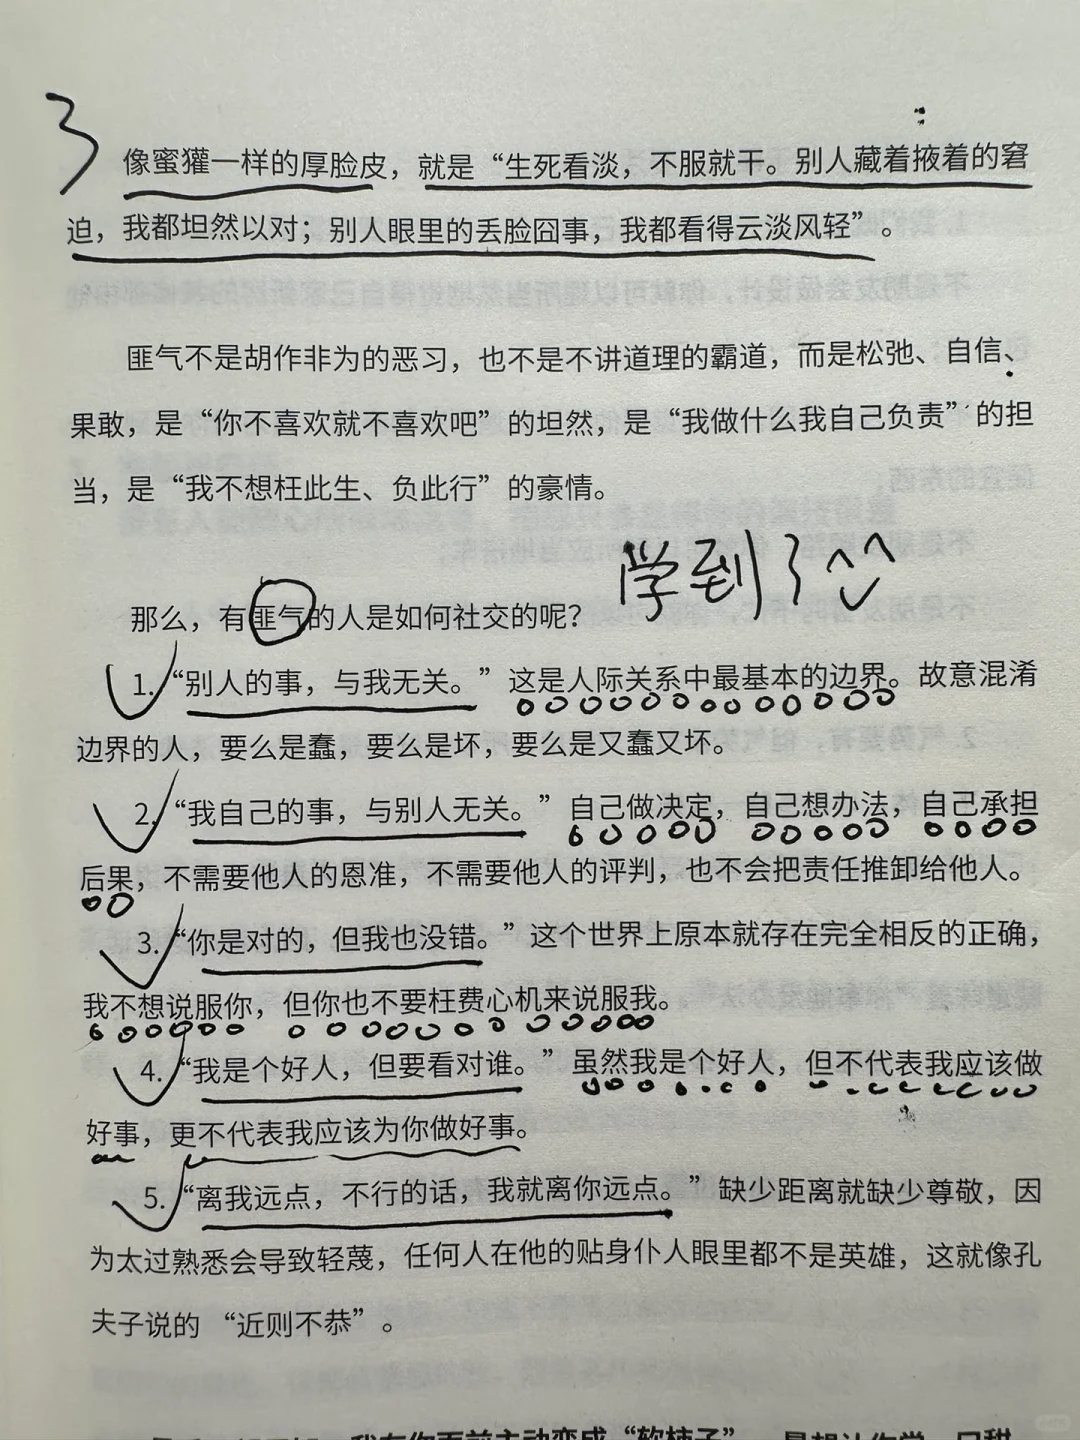 3
像蜜獾一样的厚脸皮，就是“生死看淡，不服就干。别人藏着掖着的窘
迫，我都坦然以对；别人眼里的丢脸囧事，我都看得云淡风轻”。
匪气不是胡作非为的恶习，也不是不讲道理的霸道，而是松弛、自信、
果敢，是“你不喜欢就不喜欢吧”的坦然，是“我做什么我自己负责”的担
当，是“我不想枉此生、负此行”的豪情。
学到了^^
那么，有匪气的人是如何社交的呢？
1. “别人的事，与我无关。”这是人际关系中最基本的边界。故意混淆
边界的人，要么是蠢，要么是坏，要么是又蠢又坏。
2. “我自己的事，与别人无关。”自己做决定，自己想办法，自己承担
后果，不需要他人的恩准，不需要他人的评判，也不会把责任推卸给他人。
3. “你是对的，但我也没错。”这个世界上原本就存在完全相反的正确，
我不想说服你，但你也不要枉费心机来说服我。
4. “我是个好人，但要看对谁。”虽然我是个好人，但不代表我应该做
好事，更不代表我应该为你做好事。
5. “离我远点，不行的话，我就离你远点。”缺少距离就缺少尊敬，因
为太过熟悉会导致轻蔑，任何人在他的贴身仆人眼里都不是英雄，这就像孔
夫子说的“近则不恭”。
我在你面前主动变成“软柿子”，